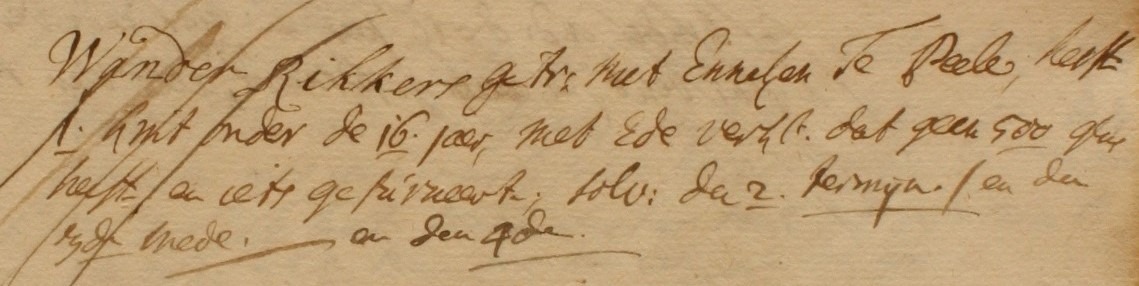 Wijnder Rikkers getr: met Enneken Te Peele, heeft
1. kint onder de 16. jaer, met Ede verkl: dat geen 500 gul
heeft en iets gefurneert; solv: den 2. termijn. / en den
3de mede. en den 4den.